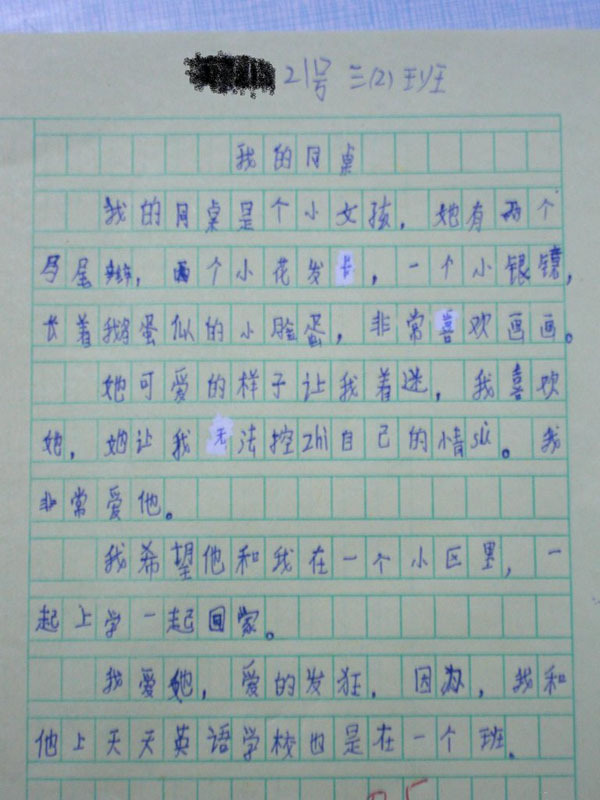 21号 三(2)班
我的同桌
我的同桌是个小女孩，她有两个
马尾辫，两个小花发卡，一个小银镜，
长着鹅蛋似的小脸蛋，非常喜欢画画。
她可爱的样子让我着迷，我喜欢
她，她让我无法控zhi自己的情sù。我
非常爱他。
我希望他和我在一个小区里，一
起上学一起回家。
我爱她，爱的发狂，因为，我和
他上天天英语学校也是在一个班。